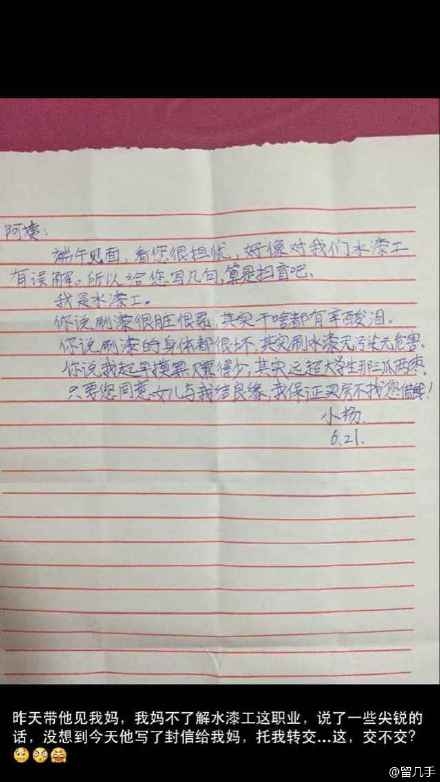 阿姨:
端午见面,看您很担忧,好像对我们水漆工
有误解。所以给您写几句,算是扫盲吧。
我是水漆工。
你说刷漆很脏很累,其实干啥都有辛酸泪。
你说刷漆的身体都很坏,其实刷水漆无污染无危害。
你说我起早摸黑赚得少,其实远超大学生那三瓜两枣。
只要您同意女儿与我结良缘,我保证买房不找您借钱!
小杨.
6.21.
昨天带他见我妈,我妈不了解水漆工这职业,说了一些尖锐的
话,没想到今天他写了封信给我妈,托我转交...这,交不交?
@留几手